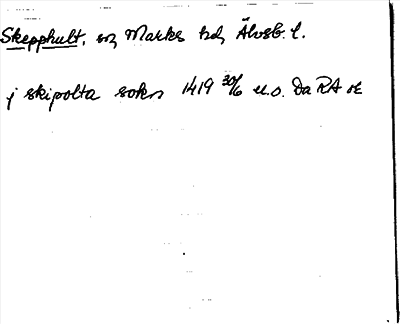 Skepphult, sn, Marks hd, Älvsb. l.
j skipolta sokn 1419 30/6 u.o. Da RA or